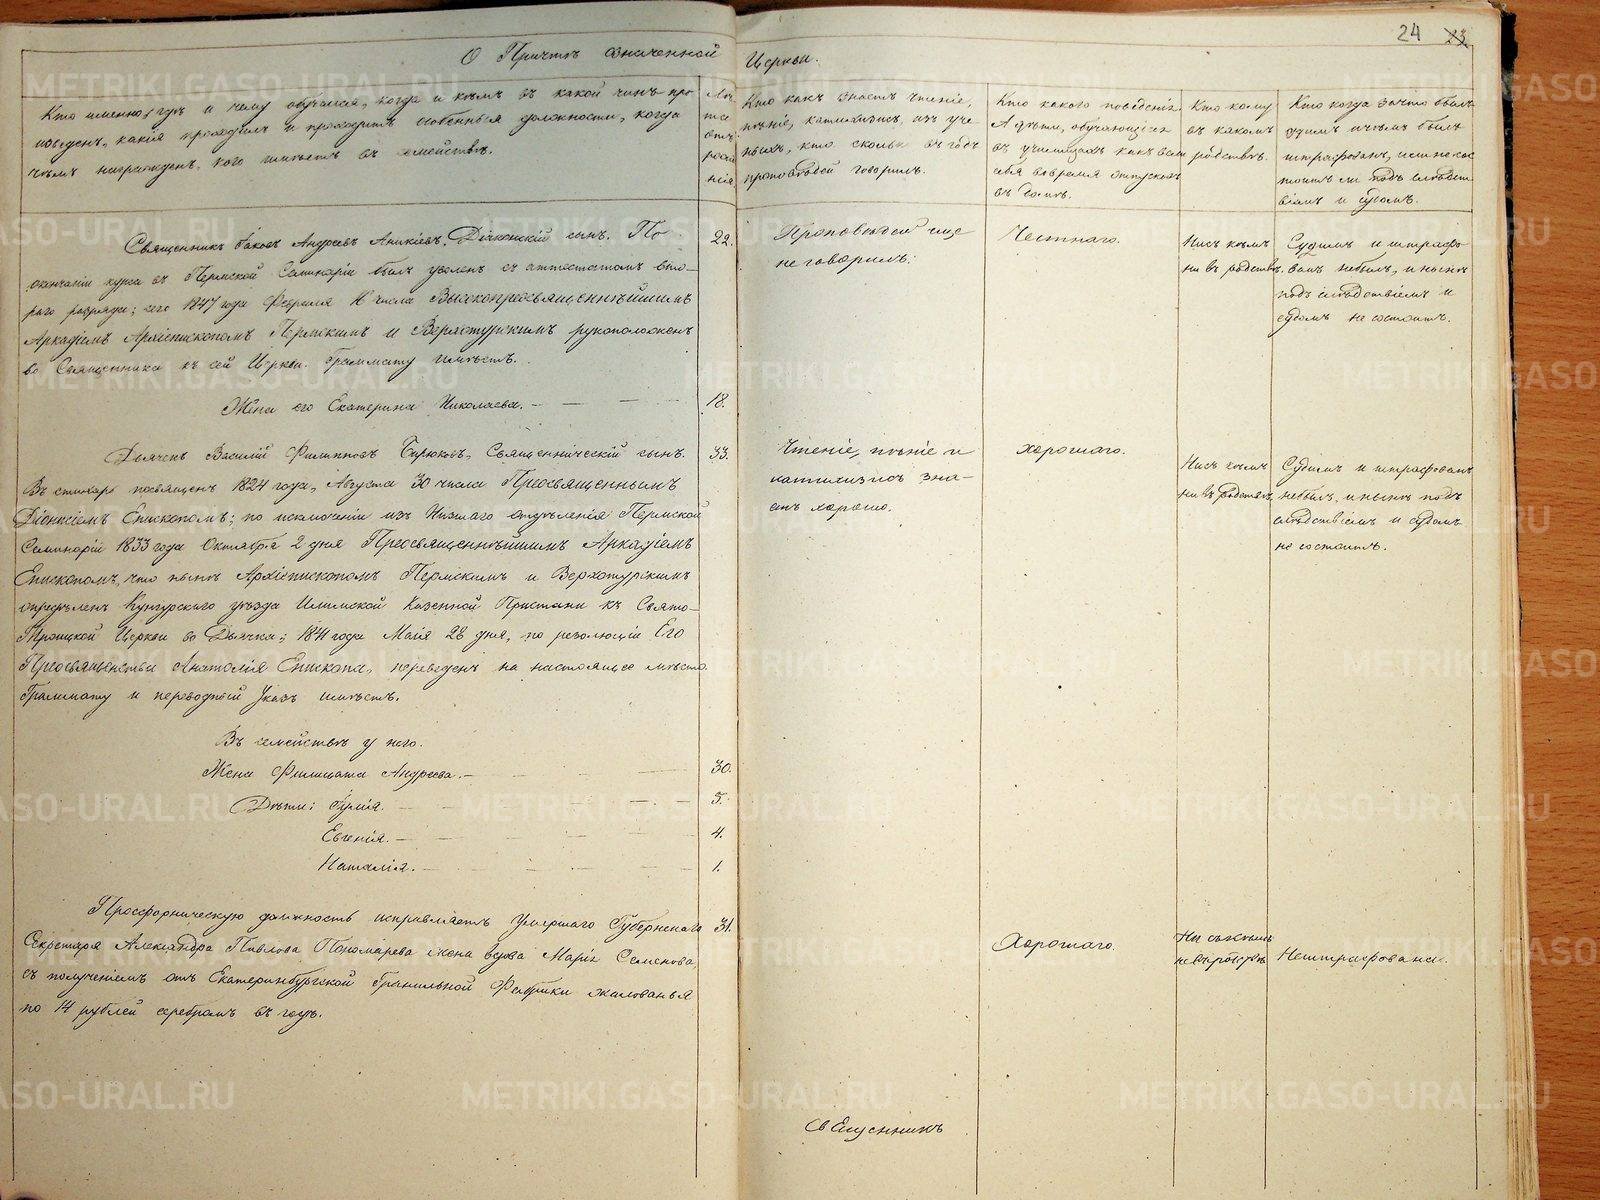 24 23
О Причтѣ означенной Церкви.
Кто именно, гдѣ и чему обучался, когда и кѣмъ въ какой чинъ про-
изведенъ, какія проходилъ и проходитъ особенныя должности, когда
чѣмъ награжденъ, кого имѣетъ въ семействѣ.
Лѣ-
та
отъ
рож
нія
Кто какъ знаетъ чтеніе,
пѣніе, катихизисъ, изъ уче
ныхъ, кто сколько въ годъ
проповѣдей говорилъ.
Кто какого поведенія
А дѣти, обучающіеся
въ училищахъ какъ вели
себя во время отпусковъ
въ домъ.
Кто кому
въ какомъ
родствѣ.
Кто когда за что былъ
судимъ и чѣмъ былъ
штрафованъ, или не сос
тоитъ ли подъ слѣдст
віемъ и судомъ.
Священникъ Іаковъ Андреевъ Аникіевъ, Діаконскій сынъ. По
окончаніи курса въ Пермской Семинаріи былъ уволенъ съ аттестатомъ вто-
раго разряда; сего 1847 года Февраля числа Высокопреосвященнѣйшимъ
Аркадіемъ Архіепископомъ Пермскимъ и Верхотурскимъ рукоположенъ
во Священника къ сей Церкви. Граммату имѣетъ.
22.
Проповѣдей еще
не говорилъ.
Честнаго.
Ни съ кѣмъ
ни въ родствѣ.
Судимъ и штрафо
ванъ небылъ, и нынѣ
подъ слѣдствіемъ и
судомъ не состоитъ.
Жена его Екатерина Николаева. 18.
Дьячекъ Василій Филипповъ Бирюковъ, Священническій сынъ.
Въ стихарь посвященъ 1824 года, Августа 30 числа Преосвященнымъ
Діонисіемъ Епископомъ; по исключеніи изъ Низшаго отдѣленія Пермской
Семинаріи 1833 года Октября 2 дня Преосвященнѣйшимъ Аркадіемъ
Епископомъ, что нынѣ Архіепископомъ Пермскимъ и Верхотурскимъ
опредѣленъ Кунгурскаго уѣзда Илимской Казенной Пристани къ Свято-
Троицкой Церкви во Дьячка; 1841 года Маія 28 дня, по резолюціи Его
Преосвященства Анатолія Епископа, переведенъ на настоящее мѣсто.
Граммату и переводный Указъ имѣетъ.
33.
Чтеніе, пѣніе и
катихизисъ зна-
етъ хорошо.
хорошаго.
Ни съ кѣмъ
ни въ родствѣ
Судимъ и штрафованъ
небылъ, и нынѣ подъ
слѣдствіемъ и судомъ
не состоитъ.
Въ семействѣ у него.
Жена Филицата Андреева. 30.
Дѣти: Іулія. 5.
Евгенія. 4.
Наталія. 1.
Просфорническую должность исправляетъ Умершаго Губернскаго
Секретаря Александра Павлова Пономарева жена вдова Марія Семенова
съ полученіемъ отъ Екатеринбургской Гранильной Фабрики жалованья
по 14 рублей серебромъ въ годъ.
31.
Хорошаго.
Ни съ кѣмъ
не въ родствѣ
Нештрафована.
Священникъ
METRIKI.GASO-URAL.RU